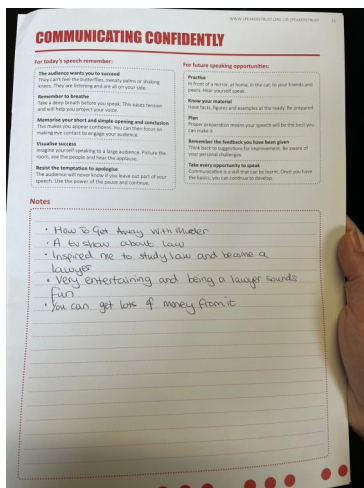 WWW.SPEAKERSTRUST.ORG | © SPEAKERSTRUST
COMMUNICATING CONFIDENTLY
For today's speech remember:
The audience wants you to succeed
They can't feel the butterflies, sweaty palms or shaking
knees. They are listening and are all on your side.
Remember to breathe
Take a deep breath before you speak. This eases tension
and will help you project your voice.
Memorise your short and simple opening and conclusion
This makes you appear confident. You can then focus on
making eye contact to engage your audience.
Visualise success
Imagine yourself speaking to a large audience. Picture the
room, see the people and hear the applause.
Resist the temptation to apologise
The audience will never know if you leave out part of your
speech. Use the power of the pause and continue.
For future speaking opportunities:
Practise
In front of a mirror, at home, in the car, to your friends and
peers. Hear yourself speak.
Know your material
Have facts, figures and examples at the ready. Be prepared
Plan
Proper preparation means your speech will be the best you
can make it.
Remember the feedback you have been given
Think back to suggestions for improvement. Be aware of
your personal challenges.
Take every opportunity to speak
Communication is a skill that can be learnt. Once you have
the basics, you can continue to develop.
Notes
• How To Get Away With Murder
• A tv show about law
• Inspired me to study law and become a
lawyer
• Very entertaining and being a lawyer sounds
fun
• You can get lots of money from it